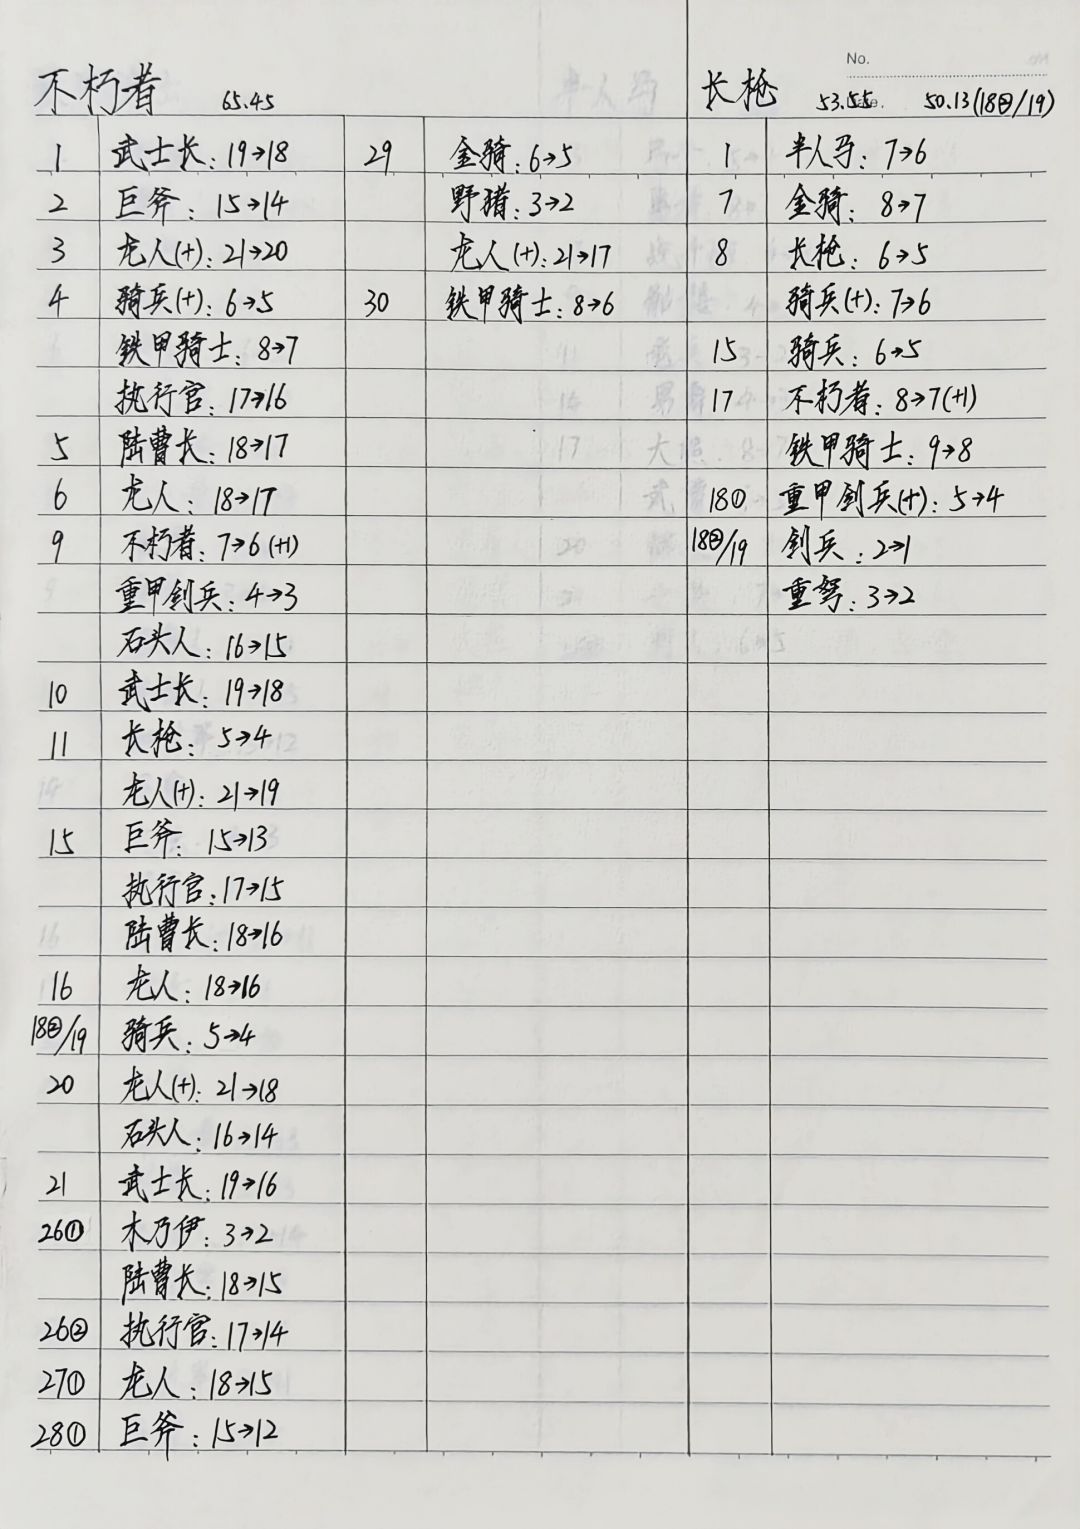 No.
不朽者 65.45
长枪 53.55 50.13(18②/19)
1 武士长: 19→18
2 巨斧: 15→14
3 龙人(+): 21→20
4 骑兵(+): 6→5
铁甲骑士: 8→7
执行官: 17→16
5 陆曹长: 18→17
6 龙人: 18→17
9 不朽者: 7→6(+1)
重甲剑兵: 4→3
石头人: 16→15
10 武士长: 19→18
11 长枪: 5→4
龙人(+): 21→19
15 巨斧: 15→13
执行官: 17→15
陆曹长: 18→16
16 龙人: 18→16
18②/19 骑兵: 5→4
20 龙人(+): 21→18
石头人: 16→14
21 武士长: 19→16
26① 木乃伊: 3→2
陆曹长: 18→15
26② 执行官: 17→14
27① 龙人: 18→15
28① 巨斧: 15→12
29 金骑: 6→5
野猪: 3→2
龙人(+): 21→17
30 铁甲骑士: 8→6
1 半人马: 7→6
7 金骑: 8→7
8 长枪: 6→5
骑兵(+): 7→6
15 骑兵: 6→5
17 不朽者: 8→7(+1)
铁甲骑士: 9→8
18① 重甲剑兵(+): 5→4
18②/19 剑兵: 2→1
重弩: 3→2